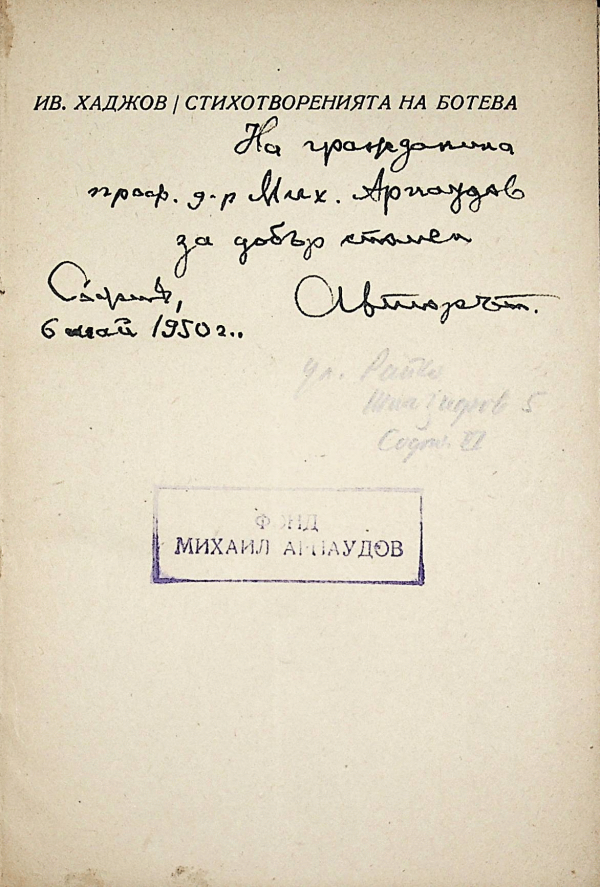 ИВ. ХАДЖОВ / СТИХОТВОРЕНИЯТА НА БОТЕВА
На гражданина
проф. д-р Мих. Арнаудов
за добър спомен
София,
Авторът.
6 май 1950 г..
ул. Райко
Жинзифов 5
София VI
ФОНД
МИХАИЛ АРНАУДОВ